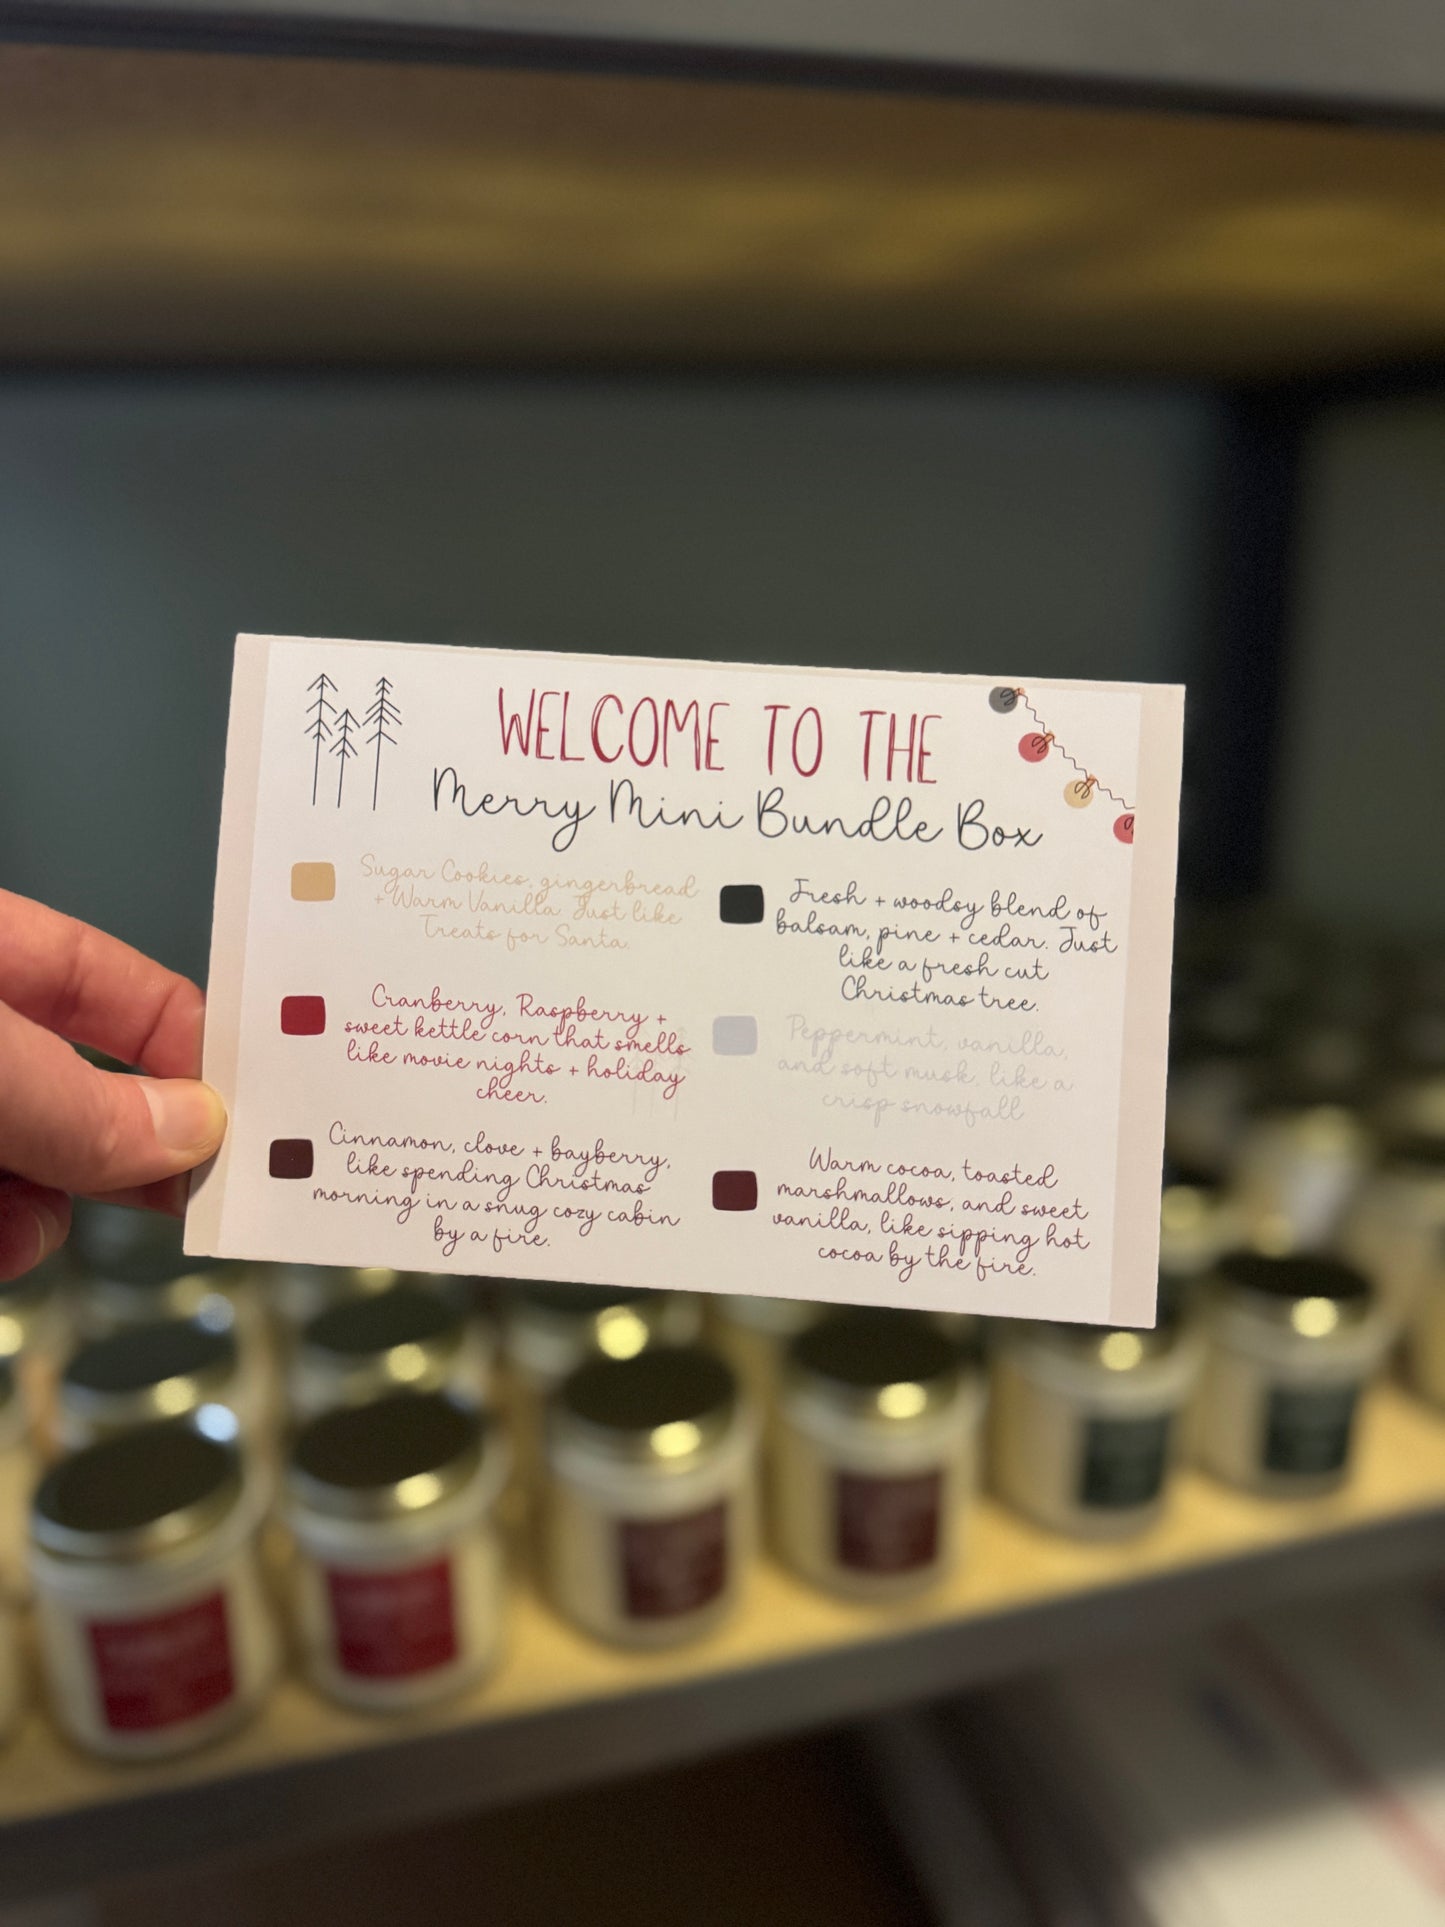 WELCOME TO THE
Merry Mini Bundle Box
Sugar Cookies, gingerbread
+ Warm Vanilla. Just like
Treats for Santa.
Cranberry, Raspberry +
sweet kettle corn that smells
like movie nights + holiday
cheer.
Cinnamon, clove + bayberry,
like spending Christmas
morning in a snug cozy cabin
by a fire.
Fresh + woodsy blend of
balsam, pine + cedar. Just
like a fresh cut
Christmas tree.
Peppermint, vanilla,
and soft musk, like a
crisp snowfall
Warm cocoa, toasted
marshmallows, and sweet
vanilla, like sipping hot
cocoa by the fire.